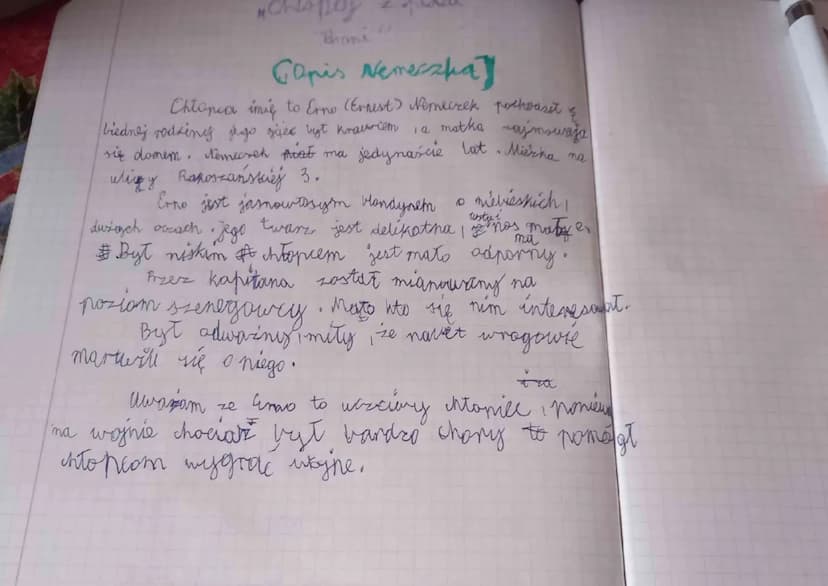 „Chłopcy z placu
broni"
[Opis Nemeczka]
Chłopca imię to Erno (Ernest) Nemeczek pochodził z
biednej rodziny jego ojciec był krawcem, a matka zajmowała
się domem. Nemeczek miał ma jedynaście lat. Mieszka na
ulicy Rakoszańskiej 3.
Erno jest jasnowłosym blondynem o niebieskich,
dużych oczach. jego twarz jest delikatna, usta i nos małe.
Był niskim chłopcem jest mało odporny.
ma
Przez kapitana został mianowany na
poziom szeregowcy. Mało kto się nim interesował.
Był odważny, miły, że nawet wrogowie
martwili się o niego.
Uważam że Erno to uczciwy chłopiec, ponieważ
na wojnie chociaż był bardzo chory to pomógł
chłopcom wygrać wojne.